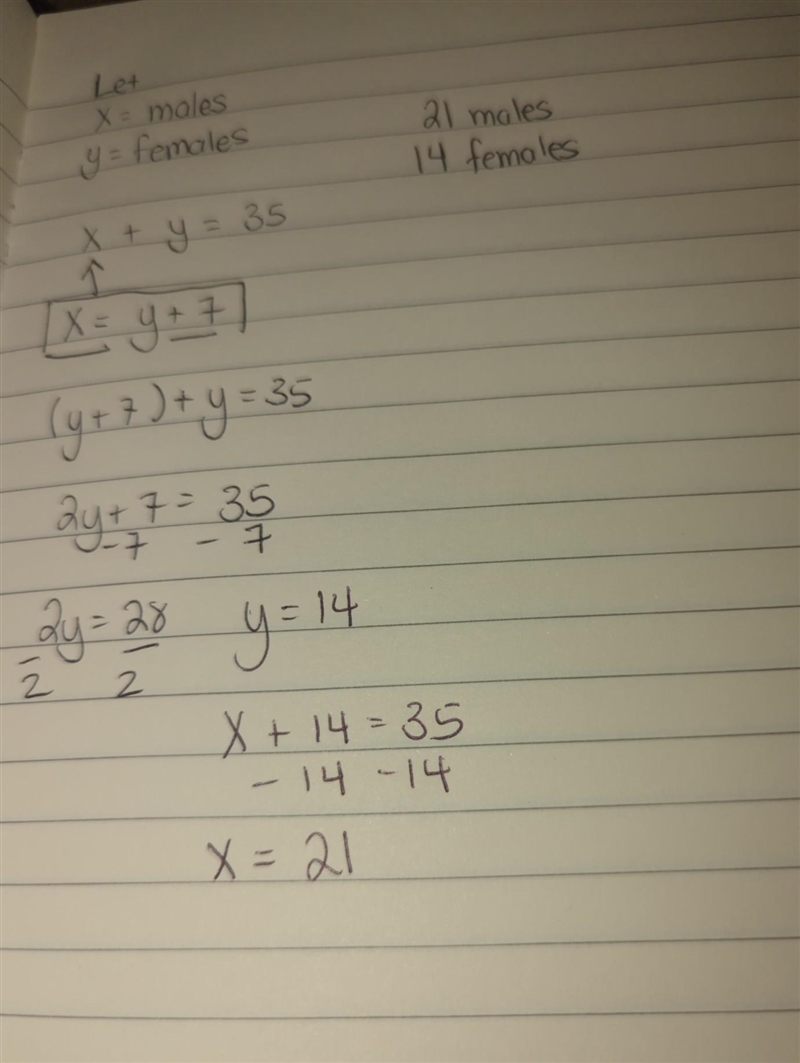 Let
x = males
y = females
21 males
14 females
x + y = 35
↑
x = y + 7
(y + 7) + y = 35
2y + 7 = 35
-7 - 7
2y = 28
2 2
y = 14
x + 14 = 35
- 14 -14
x = 21